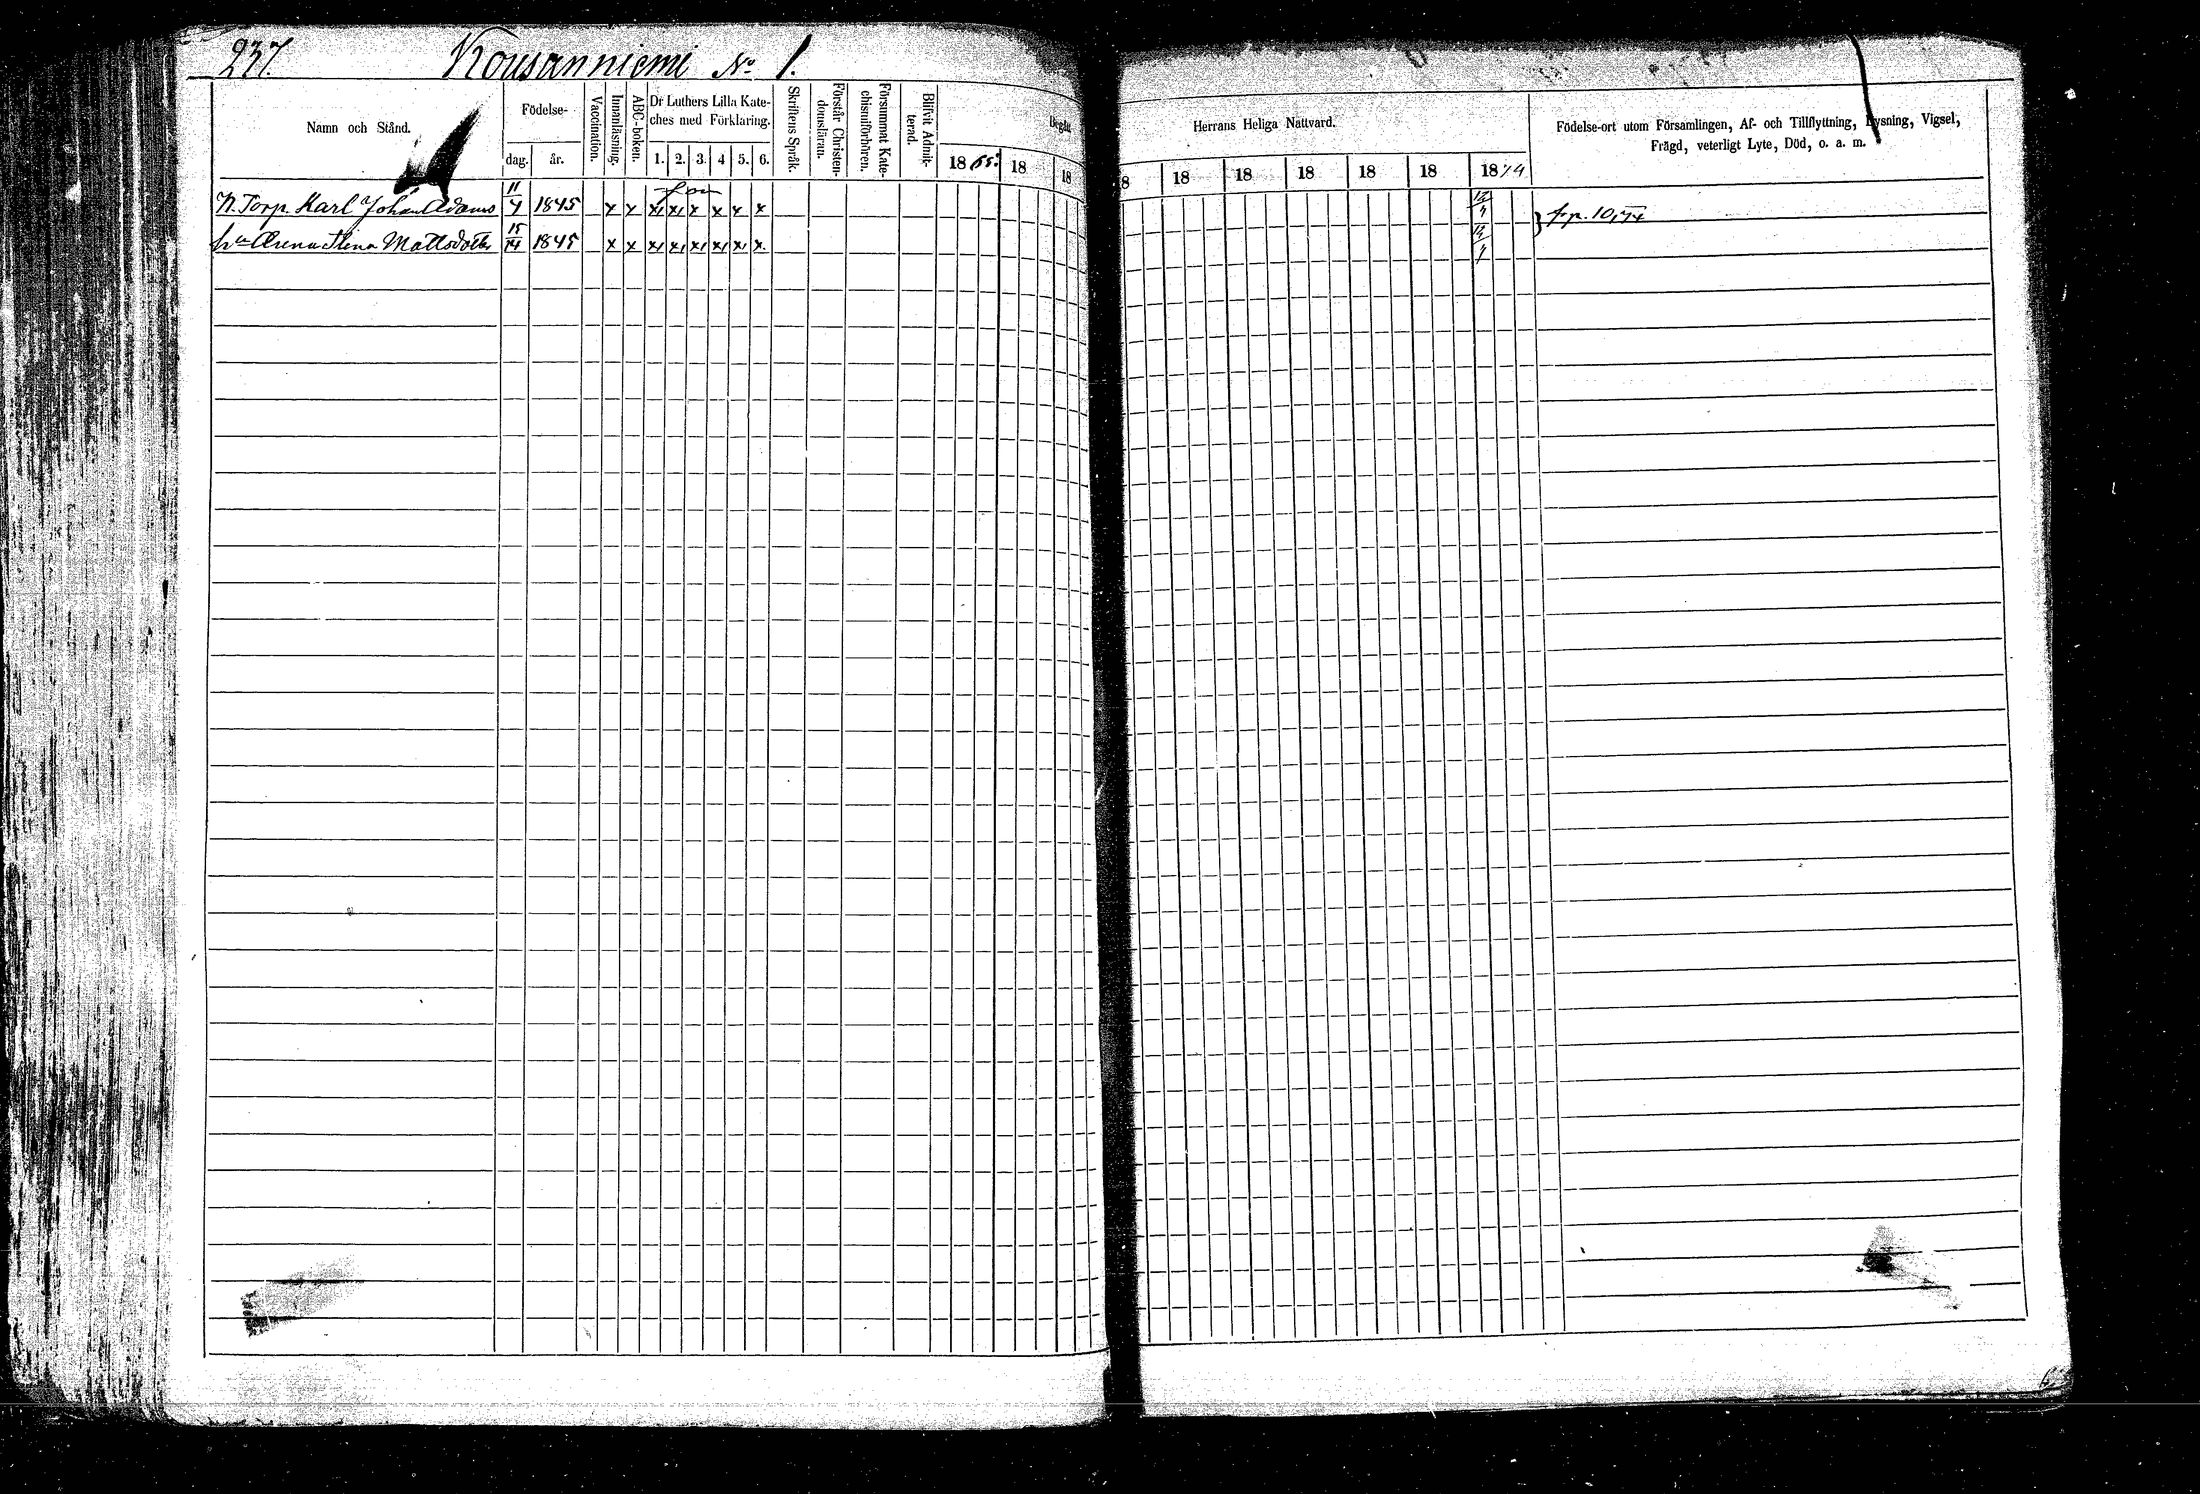 237. Kousanniemi No 1.
Namn och Stånd.
Födelse-
dag. år.
Vaccination.
Innanläsning.
ABC-boken.
Dr Luthers Lilla Kate-
ches med Förklaring.
1. 2. 3. 4 5. 6.
Skriftens Språk.
Förstår Christen-
domsläran.
Försummat Kate-
chismiförhören.
Blifvit Admit-
terad.
Begått
18 65. 18 18
N. Torp. Karl Johan Adams 11/4 1845 x x x x x x x x
hu Mattsdotter 15/14 1845 x x x x x x x x
Herrans Heliga Nattvard.
8 18 18 18 18 18 18 74
Födelse-ort utom Församlingen, Af- och Tillflyttning, Lysning, Vigsel,
Frägd, veterligt Lyte, Död, o. a. m.
12/4
12/4